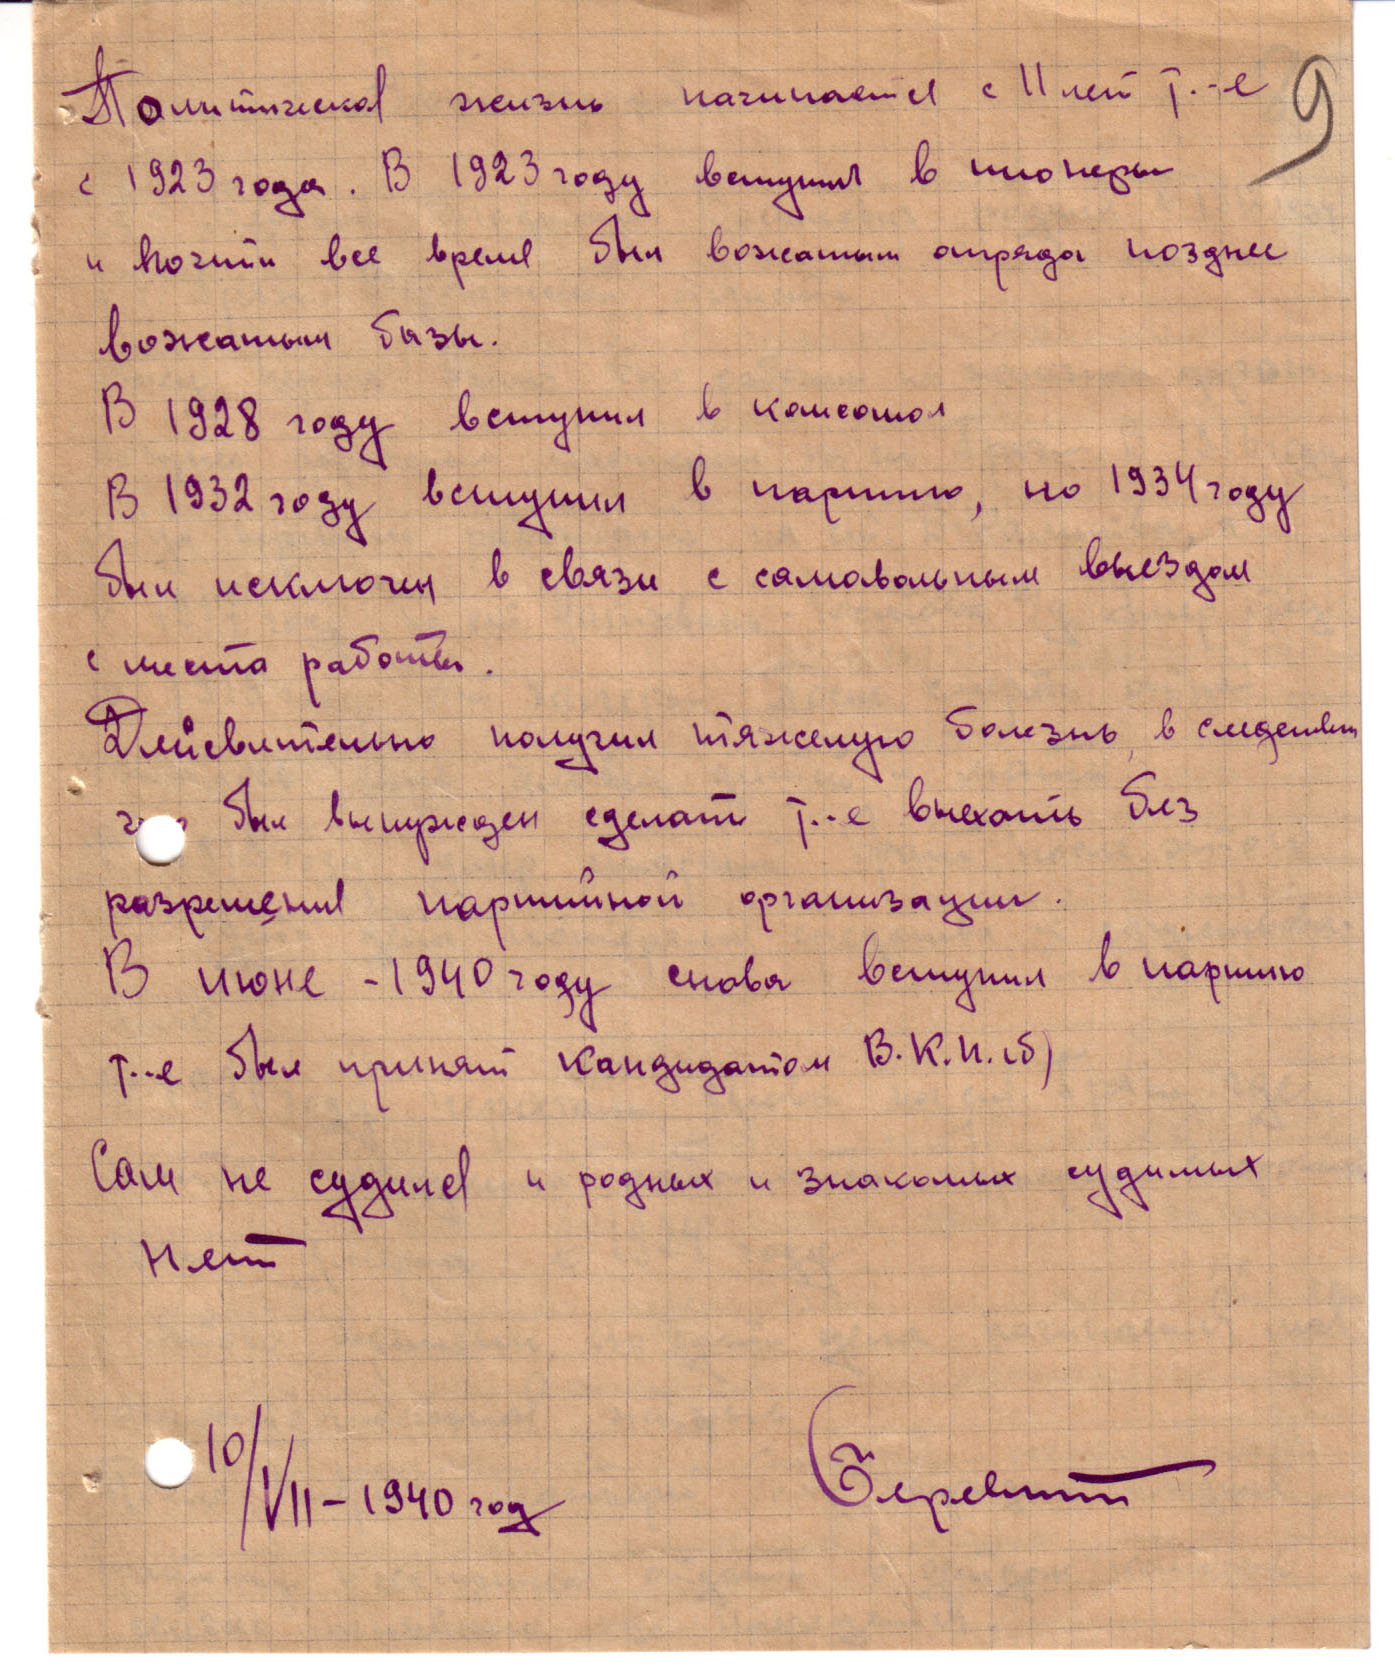 Политическая жизнь начинается с 11 лет т.-е 9
с 1923 года. В 1923 году вступил в пионеры
и почти все время был вожатым отряда позднее
вожатым базы.
В 1928 году вступил в комсомол
В 1932 году вступил в партию, но 1934 году
был исключен в связи с самовольным выездом
с места работы.
Действительно получил тяжелую болезнь, в следствии
был вынужден сделать т.-е выехать без
разрешения партийной организации.
В июне - 1940 году снова вступил в партию
т.-е был принят кандидатом В.К.П.(б)
Сам не судился и родных и знакомых судимых
нет
10/VII - 1940 год